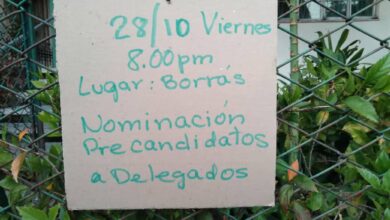 28/10 Viernes
8.00pm
Lugar: Borrás
Nominación
Precandidatos
a Delegados